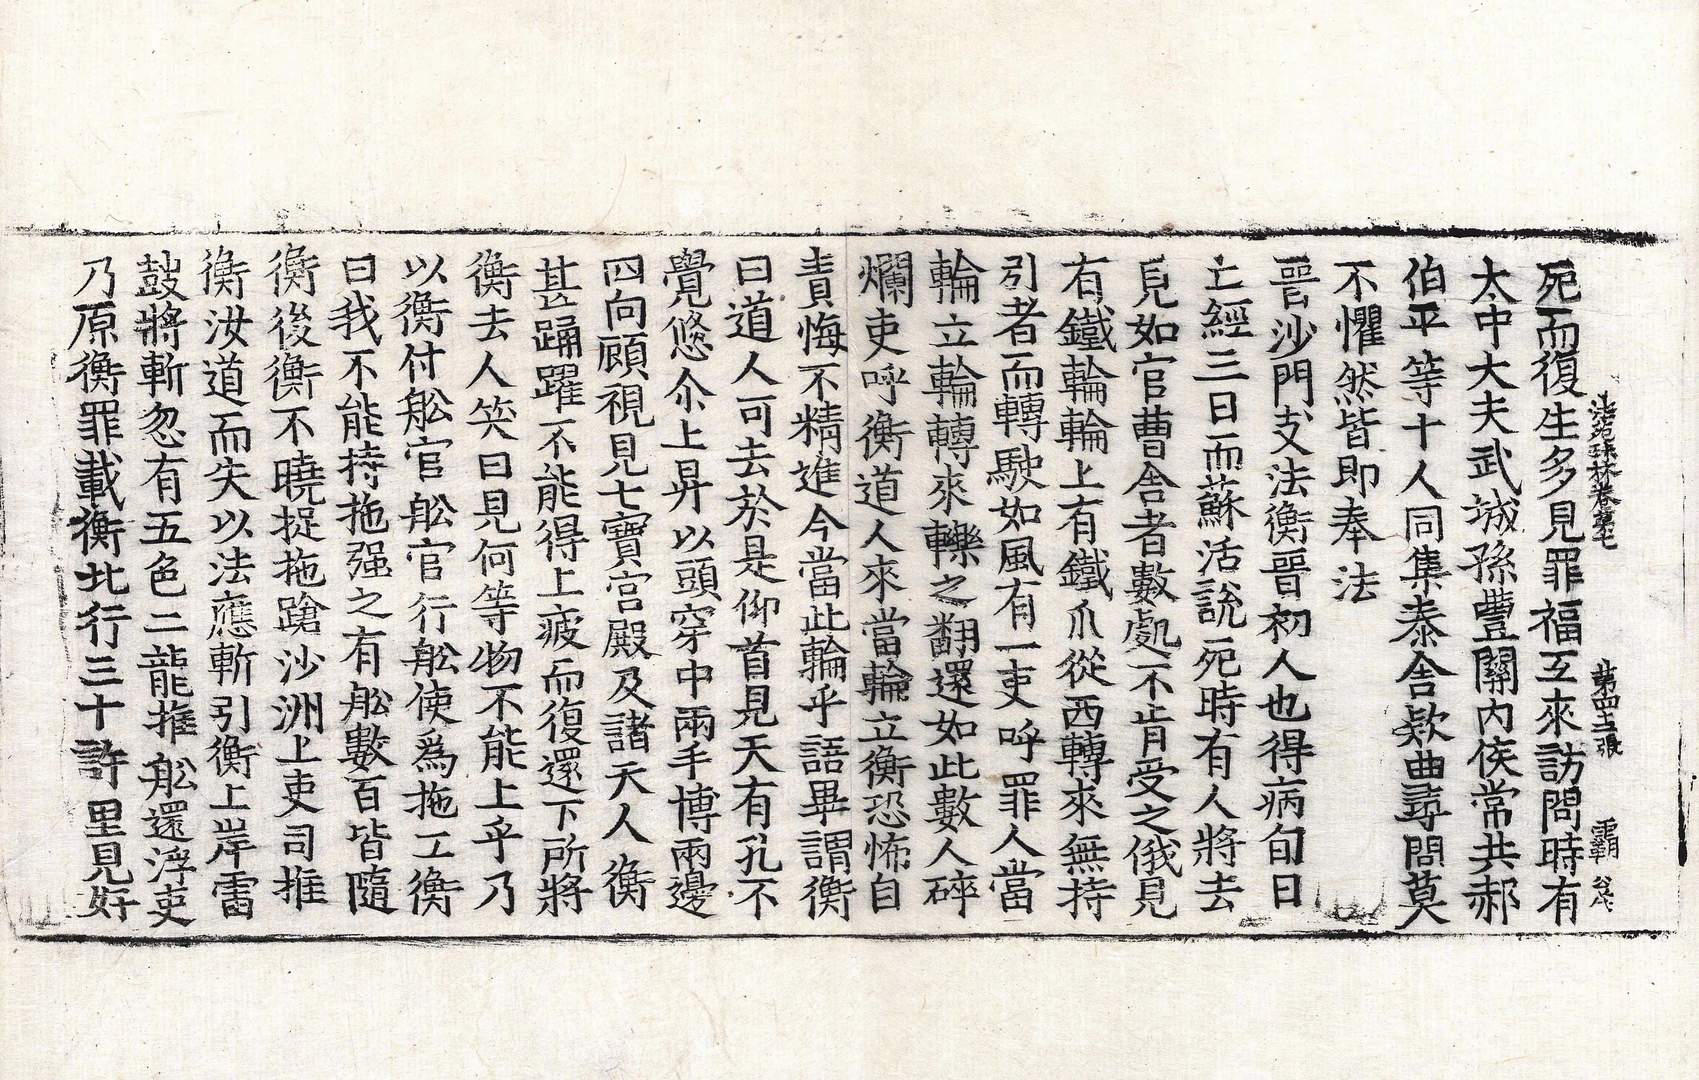 法苑珠林卷第七　第四十三張　覇
死而復生多見罪福互來訪問時有
太中大夫武城孫豐關内侯常共郝
伯平等十人同集泰舍欵曲尋問莫
不懼然皆即奉法
晉沙門支法衡晉初人也得病旬日
亡經三日而蘇活說死時有人將去
見如官曹舍者數處不肯受之俄見
有鐵輪輪上有鐵爪從西轉來無持
引者而轉駛如風有一吏呼罪人當
輪立輪轉來轢之翻還如此數人碎
爛吏呼衡道人來當輪立衡恐怖自
責悔不精進今當此輪乎語畢謂衡
曰道人可去於是仰首見天有孔不
覺悠尒上昇以頭穿中兩手博兩邊
四向顧視見七寶宮殿及諸天人衡
甚踊躍不能得上疲而復還下所將
衡去人笑曰見何等物不能上乎乃
以衡付舩官舩官行舩使爲拖工衡
曰我不能持拖强之有舩數百皆隨
衡後衡不曉捉拖蹌沙洲上吏司推
衡汝道而失以法應斬引衡上岸雷
鼓將斬忽有五色二龍推舩還浮吏
乃原衡罪載衡北行三十許里見好